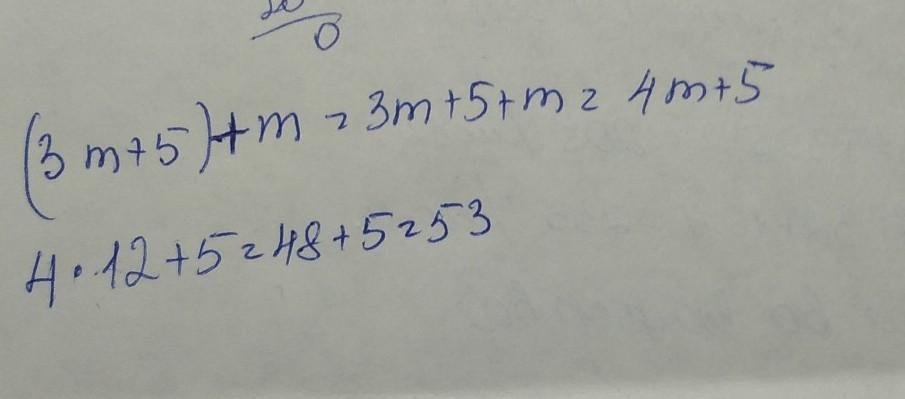 0
(3m+5)+m=3m+5+m=4m+5
4·12+5=48+5=53